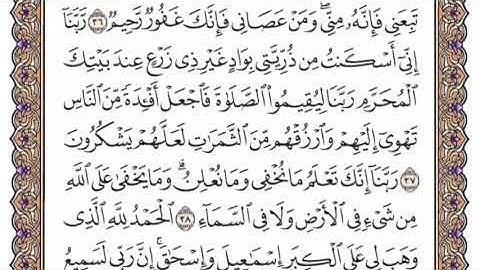 تَبِعَنِى فَإِنَّهُۥ مِنِّى ۖ وَمَنْ عَصَانِى فَإِنَّكَ غَفُورٌ رَّحِيمٌ ٣٦ رَّبَّنَآ
إِنِّىٓ أَسْكَنتُ مِن ذُرِّيَّتِى بِوَادٍ غَيْرِ ذِى زَرْعٍ عِندَ بَيْتِكَ
ٱلْمُحَرَّمِ رَبَّنَا لِيُقِيمُوا۟ ٱلصَّلَوٰةَ فَٱجْعَلْ أَفْـِٔدَةً مِّنَ ٱلنَّاسِ
تَهْوِىٓ إِلَيْهِمْ وَٱرْزُقْهُم مِّنَ ٱلثَّمَرَٰتِ لَعَلَّهُمْ يَشْكُرُونَ
٣٧ رَبَّنَآ إِنَّكَ تَعْلَمُ مَا نُخْفِى وَمَا نُعْلِنُ ۗ وَمَا يَخْفَىٰ عَلَى ٱللَّهِ
مِن شَىْءٍ فِى ٱلْأَرْضِ وَلَا فِى ٱلسَّمَآءِ ٣٨ ٱلْحَمْدُ لِلَّهِ ٱلَّذِى
وَهَبَ لِى عَلَى ٱلْكِبَرِ إِسْمَٰعِيلَ وَإِسْحَٰقَ ۚ إِنَّ رَبِّى لَسَمِيعُ